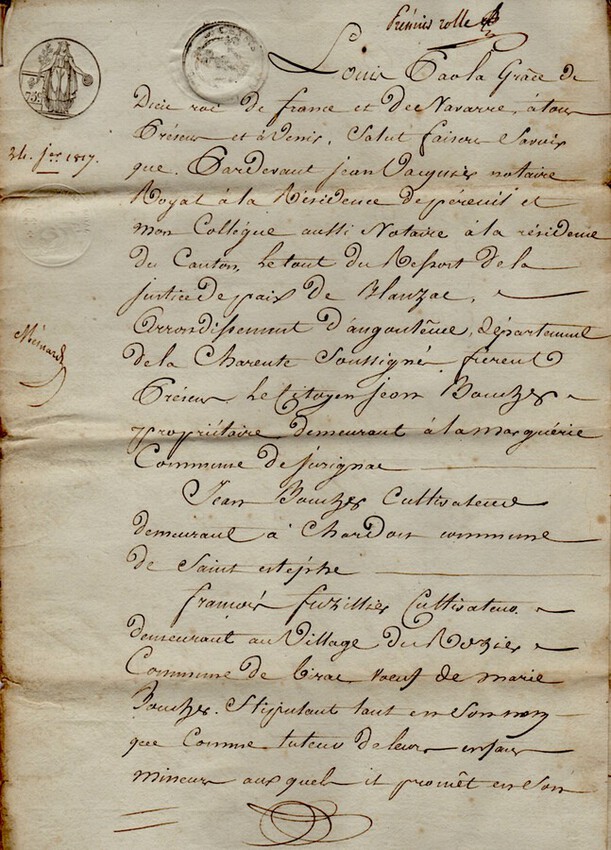 Premier rolle
Louis Par la Grâce de
Dieu roi de france et de Navarre, à tous
Présens et à Venir, Salut faisons Savoir
24. jer. 1817.
que. Pardevant jean Jacques notaire
Royal à la Résidence de péreuil et
mon Collègue aussi Notaire à la résidence
du Canton, le tout du Ressort de la
justice de paix de Blanzac,
Ménard
Arrondissement d'angoulême, Département
de la Charente Soussignés furent
Présens, le Citoyen jean Bouchet
propriétaire demeurant à la
Commune de jurignac
Jean Bouchet Cultivateur
demeurant à Chardoin commune
de Saint estèphe
francois fuzillier Cultivateur
demeurant au Village du Rozier
Commune de birac veuf de marie
Bouchet. Stipulant tant en Son nom
que Comme tuteur de leurs enfans
mineurs auxquels it promêt en Son